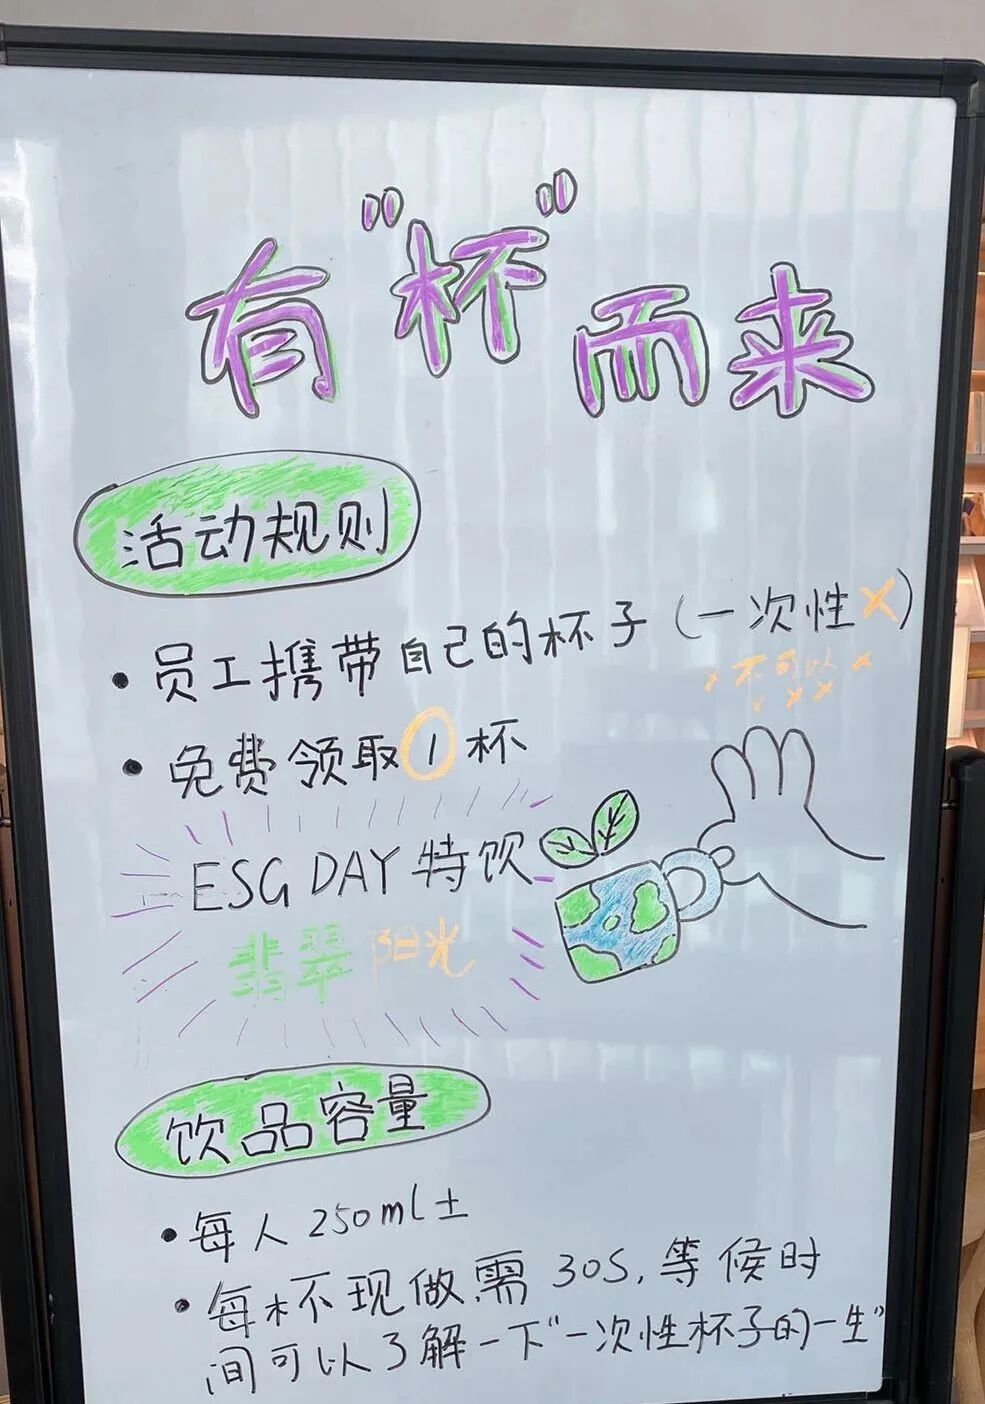 有“杯”而来
活动规则
• 员工携带自己的杯子(一次性X)
x不可以x
x x x
• 免费领取1杯
ESG DAY 特饮
翡翠阳光
饮品容量
• 每人250ml±
• 每杯现做,需30S,等候时
间可以了解一下“一次性杯子的一生”